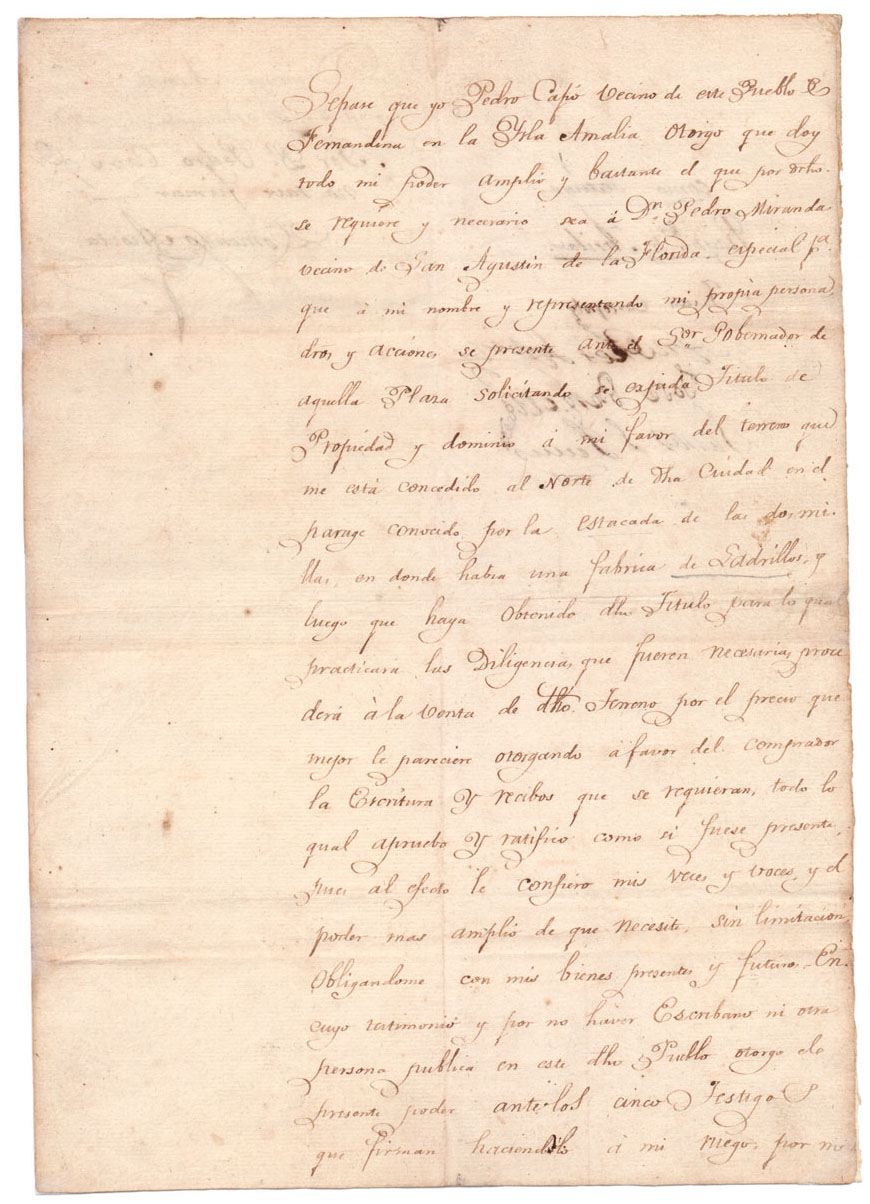 Sepase que yo Pedro Capó Vecino de este Pueblo de
Fernandina en la Ysla Amalia otorgo que doy
todo mi poder amplio y bastante el que por drho.
se requiere y necesario sea á Dn. Pedro Miranda
vecino de San Agustin de la Florida, especial pa.
que á mi nombre y representando mi propia persona,
dros, y acciones se presente ante el Sor. Gobernador de
aquella Plaza solicitando se expida Titulo de
Propiedad y dominio á mi favor del terreno que
me está concedido al Norte de dha Ciudad en el
parage conocido por la estacada de las dos mi-
llas, en donde habia una fabrica de Ladrillos, y
luego que haya obtenido dho Titulo para lo qual
practicará las Diligencias que fueren necesarias, proce
derá à la venta de dho. Terreno por el precio que
mejor le pareciere otorgando á favor del comprador
la Escritura y recibos que se requieran, todo lo
qual apruebo y ratifico como si fuese presente,
pues al efecto le confiero mis veces y voces, y el
poder mas amplio de que necesite, sin limitacion,
Obligandome con mis bienes presentes y futuros. En
cuyo testimonio y por no haver Escribano ni otra
persona publica en este dho Pueblo otorgo el
presente poder ante los cinco Testigos
que firman haciendolo á mi ruego, por no